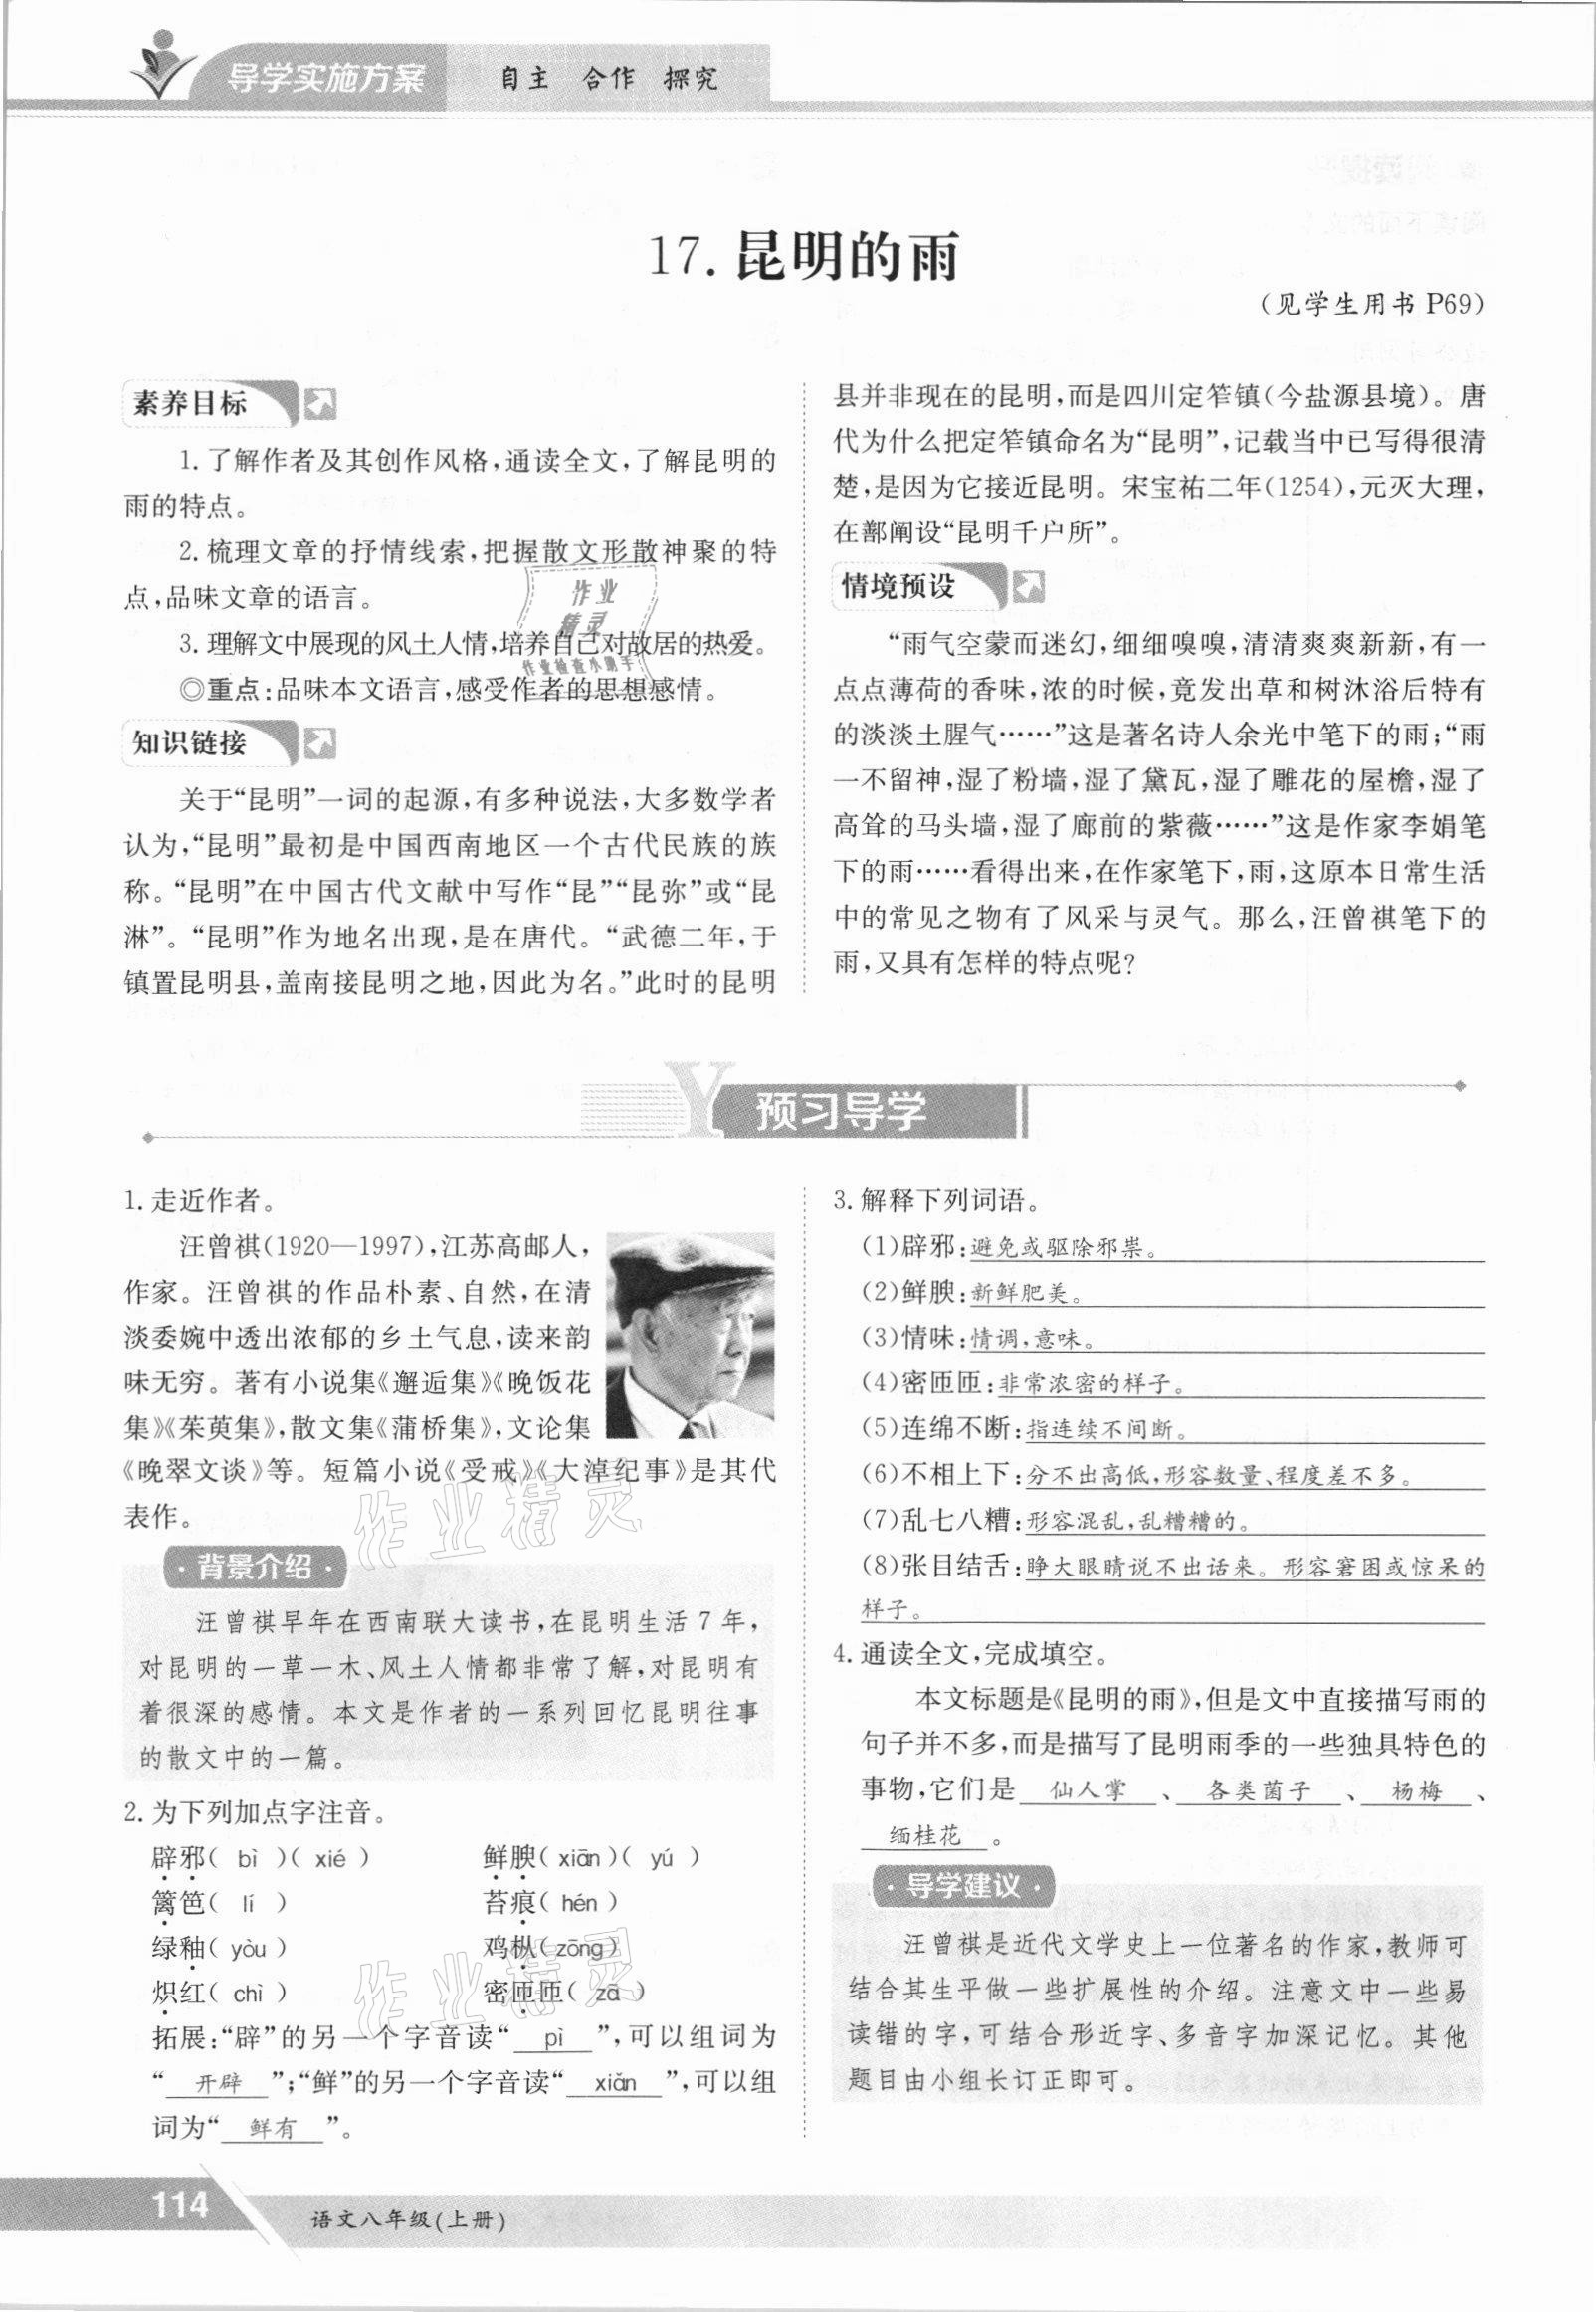 导学实施方案
自主 合作 探究
17. 昆明的雨
(见学生用书 P69)
素养目标
1. 了解作者及其创作风格,通读全文,了解昆明的
雨的特点。
2. 梳理文章的抒情线索,把握散文形散神聚的特
点,品味文章的语言。
3. 理解文中展现的风土人情,培养自己对故居的热爱。
◎重点:品味本文语言,感受作者的思想感情。
知识链接
关于“昆明”一词的起源,有多种说法,大多数学者
认为,“昆明”最初是中国西南地区一个古代民族的族
称。“昆明”在中国古代文献中写作“昆”“昆弥”或“昆
淋”。“昆明”作为地名出现,是在唐代。“武德二年,于
镇置昆明县,盖南接昆明之地,因此为名。”此时的昆明
县并非现在的昆明,而是四川定笮镇(今盐源县境)。唐
代为什么把定笮镇命名为“昆明”,记载当中已写得很清
楚,是因为它接近昆明。宋宝祐二年(1254),元灭大理,
在鄯阐设“昆明千户所”。
情境预设
“雨气空蒙而迷幻,细细嗅嗅,清清爽爽新新,有一
点点薄荷的香味,浓的时候,竟发出草和树沐浴后特有
的淡淡土腥气……”这是著名诗人余光中笔下的雨;“雨
一不留神,湿了粉墙,湿了黛瓦,湿了雕花的屋檐,湿了
高耸的马头墙,湿了廊前的紫薇……”这是作家李娟笔
下的雨……看得出来,在作家笔下,雨,这原本日常生活
中的常见之物有了风采与灵气。那么,汪曾祺笔下的
雨,又具有怎样的特点呢?
作业
精灵
作业检查小助手
Y 预习导学
1. 走近作者。
汪曾祺(1920—1997),江苏高邮人,
作家。汪曾祺的作品朴素、自然,在清
淡委婉中透出浓郁的乡土气息,读来韵
味无穷。著有小说集《邂逅集》《晚饭花
集》《茱萸集》,散文集《蒲桥集》,文论集
《晚翠文谈》等。短篇小说《受戒》《大淖纪事》是其代
表作。
作业精灵
·背景介绍·
汪曾祺早年在西南联大读书,在昆明生活 7 年,
对昆明的一草一木、风土人情都非常了解,对昆明有
着很深的感情。本文是作者的一系列回忆昆明往事
的散文中的一篇。
2. 为下列加点字注音。
辟邪( bì )( xié ) 鲜腴( xiān )( yú )
篱笆( lí ) 苔痕( hén )
绿釉( yòu ) 鸡枞( zōng )
炽红( chì ) 密匝匝( zā )
拓展:“辟”的另一个字音读“ pì ”,可以组词为
“ 开辟 ”;“鲜”的另一个字音读“ xiǎn ”,可以组
词为“ 鲜有 ”。
作业精灵
3. 解释下列词语。
(1)辟邪:避免或驱除邪祟。
(2)鲜腴:新鲜肥美。
(3)情味:情调,意味。
(4)密匝匝:非常浓密的样子。
(5)连绵不断:指连续不间断。
(6)不相上下:分不出高低,形容数量、程度差不多。
(7)乱七八糟:形容混乱,乱糟糟的。
(8)张目结舌:睁大眼睛说不出话来。形容窘困或惊呆的
样子。
4. 通读全文,完成填空。
本文标题是《昆明的雨》,但是文中直接描写雨的
句子并不多,而是描写了昆明雨季的一些独具特色的
事物,它们是 仙人掌 、 各类菌子 、 杨梅 、
缅桂花 。
·导学建议·
汪曾祺是近代文学史上一位著名的作家,教师可
结合其生平做一些扩展性的介绍。注意文中一些易
读错的字,可结合形近字、多音字加深记忆。其他
题目由小组长订正即可。
114
语文八年级(上册)